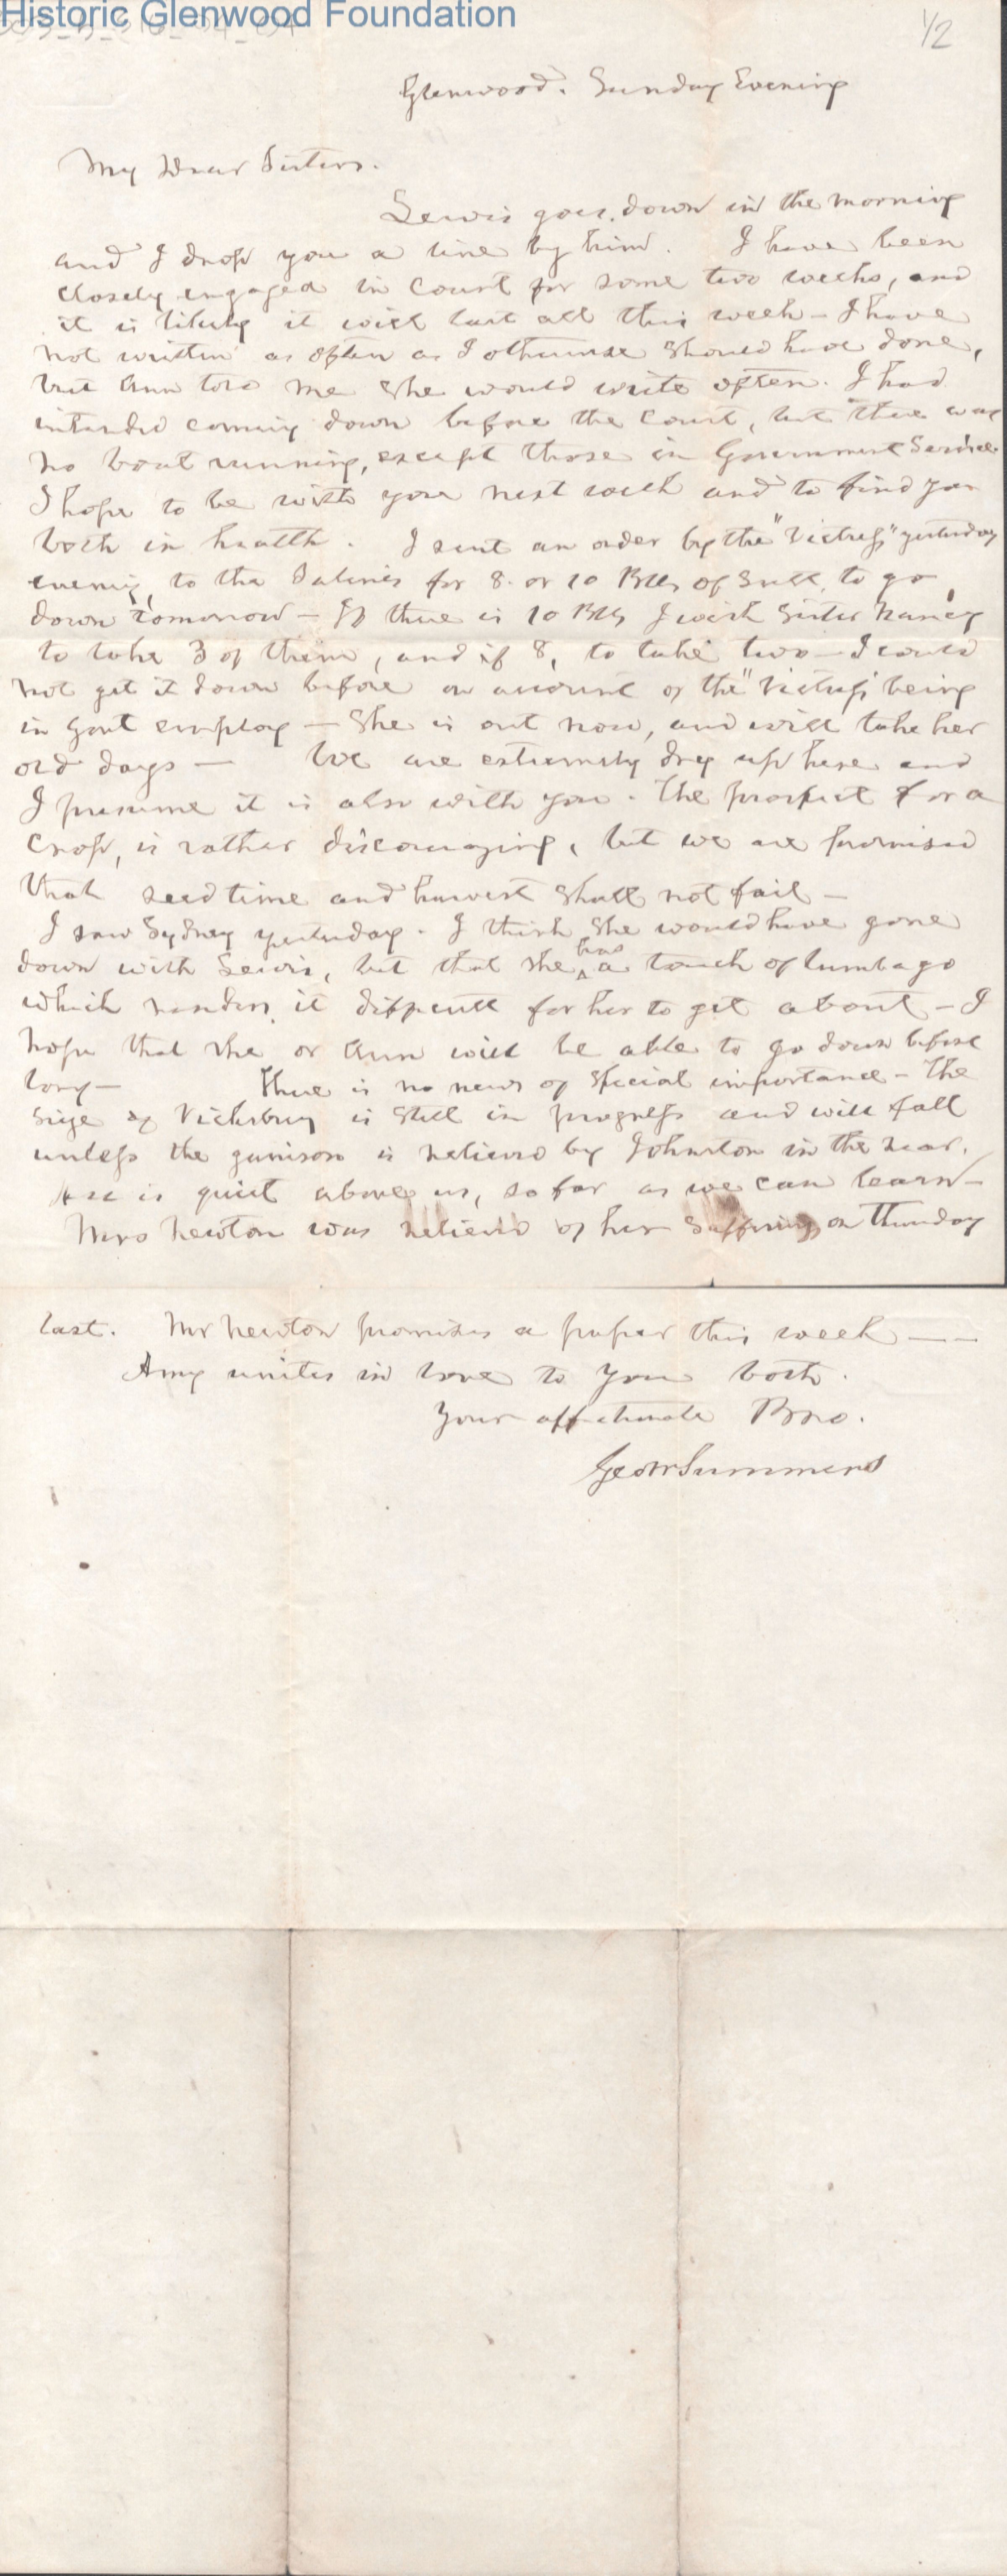 Historic Glenwood Foundation
1/2
Glenwood. Sunday Evening
My Dear Sisters.
Lewis goes down in the morning
and I drop you a line by him. I have been
closely engaged in Court for some two weeks, and
it is likely it will last all this week - I have
not written as often as I otherwise should have done,
but Ann told me she would write often. I had
intended coming down before the Court, but there was
no boat running, except those in Government Service
I hope to be with you next week and to find you
both in health. I sent an order by the "Victress" yesterday
evening, to the Salines for 8. or 10 Blls of Salt, to go
down tomorrow - If there is 10 Blls I wish Sister Nancy
to take 3 of them, and if 8, to take two - I could
not get it down before on account of the "Victress" being
in Govt employ - She is out now, and will take her
old days - We are extremely dry up here and
I presume it is also with you. The prospect for a
crop, is rather discouraging, but we are promised
that seed time and harvest shall not fail -
I saw Sydney yesterday. I think she would have gone
down with Lewis, but that she has a touch of lumbago
which renders it difficult for her to get about - I
hope that she or Ann will be able to go down before
long - There is no news of special importance - The
siege of Vicksburg is still in progress and will fall
unless the garrison is relieved by Johnston in the rear.
All is quiet above us, so far as we can learn -
Mrs Newton was relieved of her suffering on Thursday
last. Mr Newton promises a paper this week - -
Amy unites in love to you both.
Your affectionate Bro.
Geo W Summers